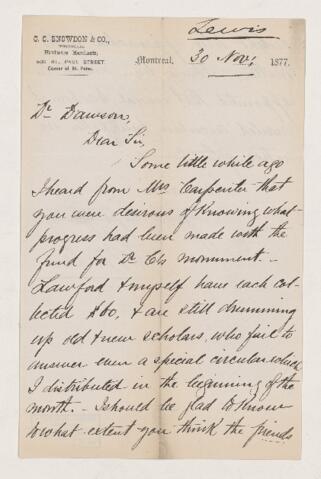 Lewis
C. C. SNOWDON & CO.,
WHOLESALE
Hardware Merchants,
ST. PAUL STREET
Corner of St. Peter.
Montreal, 30 Nov; 1877.
Dr Dawson,
Dear Sir,
Some little while ago
I heard from Mrs Carpenter that
you were desirous of knowing what
progress had been made with the
fund for Dr C's monument. -
Lawford & myself have each col-
lected $60, & are still drumming
up old & new scholars, who fail to
answer even a special circular which
I distributed in the beginning of the
month. - I should be glad to know
to what extent you think the friends